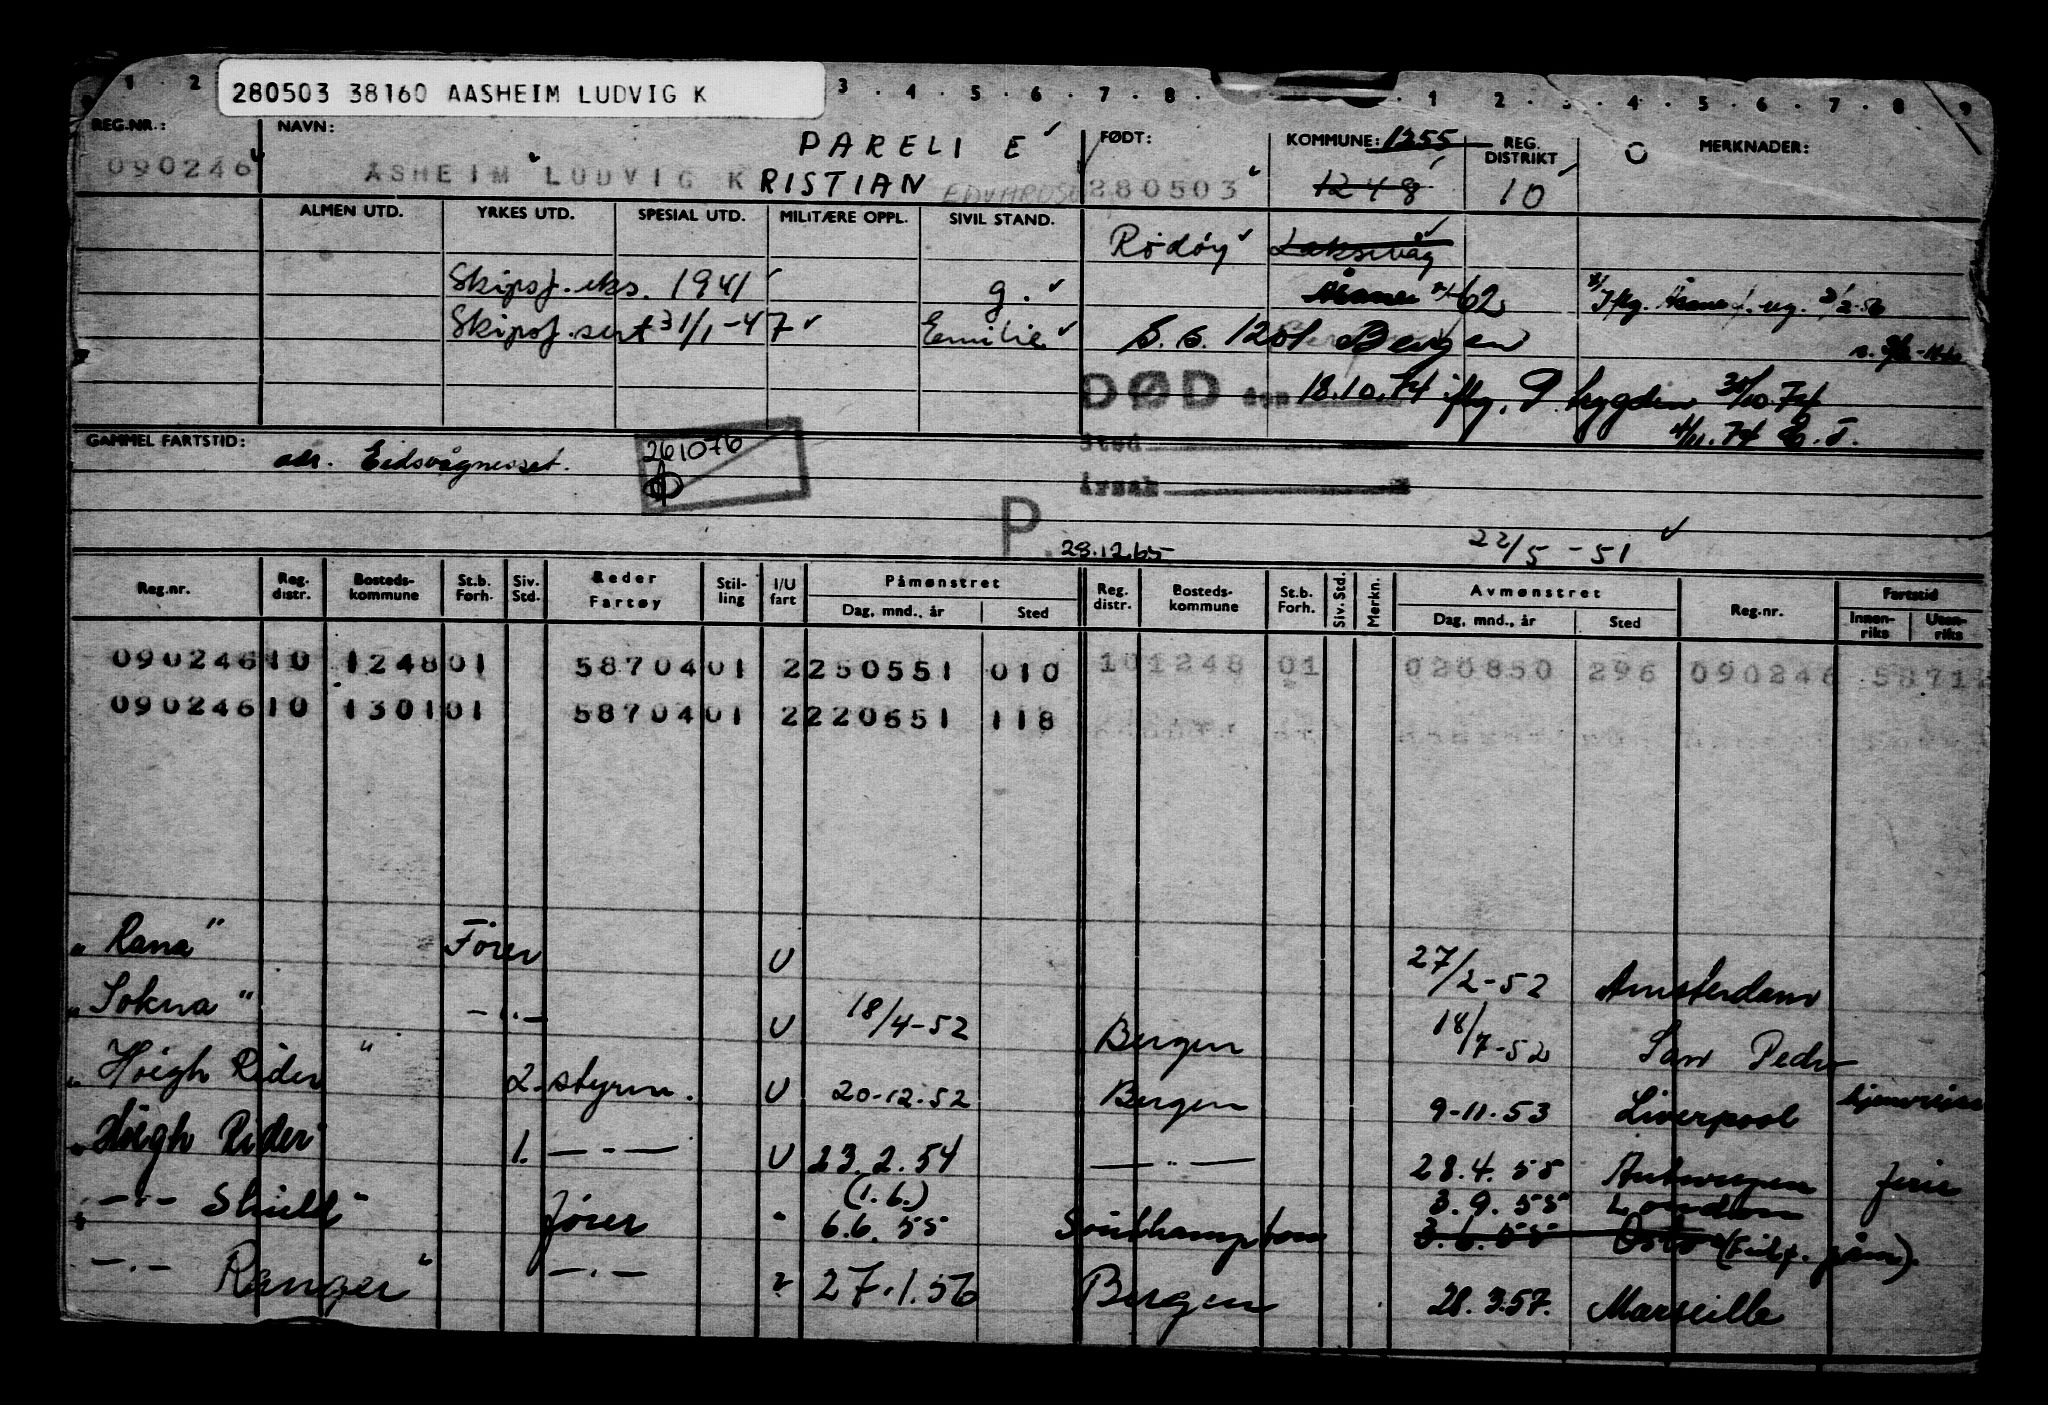 280503 38160 AASHEIM LUDVIG K
1 2 3 4 5 6 7 8 1 2 3 4 5 6 7 8 9
REG.NR.: NAVN: PARELI E FØDT: KOMMUNE: 1255 REG. DISTRIKT O MERKNADER:
090246 ÅSHEIM LUDVIG KRISTIAN 280503 1248 10
ALMEN UTD. YRKES UTD. SPESIAL UTD. MILITÆRE OPPL. SIVIL STAND.
Rødøy Laksevåg
Skipsf. eks. 1941 g. Åsane 62
Skipsf. sert 31/1-47 Emilie 1201 Bergen
DØD den 18.10.74 flg. P. trygden 30/10.74
4/11.74
GAMMEL FARTSTID: adr. Eidsvågnesset. 261076
Sted
Årsak
P. 29.12.65 22/5-51
Reg.nr. Reg. distr. Bosteds-kommune St.b. Forh. Siv. Std. Reder Fartøy Stil-ling I/U fart Påmønstret Reg. distr. Bosteds-kommune St.b. Forh. Siv. Std. Merkn. Avmønstret Reg.nr. Fartstid
Dag, mnd., år Sted Dag, mnd., år Sted Innen-riks Uten-riks
090246 10 1248 01 58704 01 2 250551 010 10 1248 01 020850 296 090246 5871
090246 10 1301 01 58704 01 2 220651 118
"Rana" Fører U 27/2-52 Amsterdam
"Sokna" -"- U 18/4-52 Bergen 18/7-52 San Pedro
"Høegh Rider" 2. styrm. U 20-12.52 Bergen 9-11.53 Liverpool hjemreise
"Høegh Rider" 1. -"- U 23.2.54 -"- 28.4.55 Antwerpen ferie
(1.6.) 3.9.55 London
"-"- Shield" fører " 6.6.55 Southampton 3.6.55 Oslo
-"- Ranger" -"- " 27.1.56 Bergen 28.3.57. Marseille